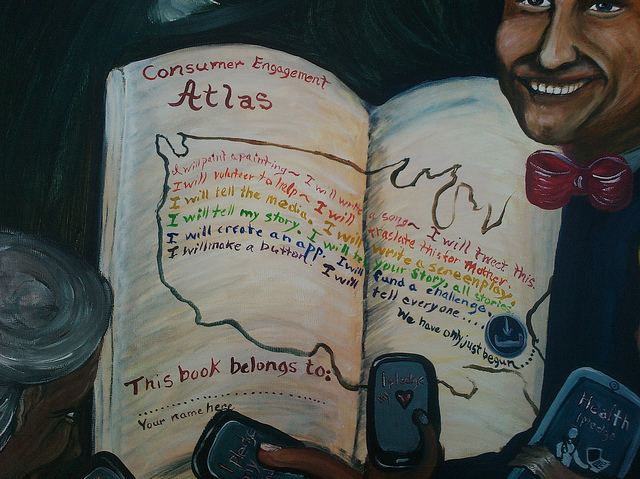 Consumer Engagement
Atlas
I will paint a painting~ I will write a song~ I will tweet this.
I will volunteer to help~ I will traslate this for mother.
I will tell the media. I will write a screenplay.
I will tell my story. I will your story, all stories.
I will create an app. I will fund a challenge.
I will make a button. I will tell everyone...
We have only just begun....
This book belongs to:
Your name here
I pledge
I pledge
my
Health
I pledge